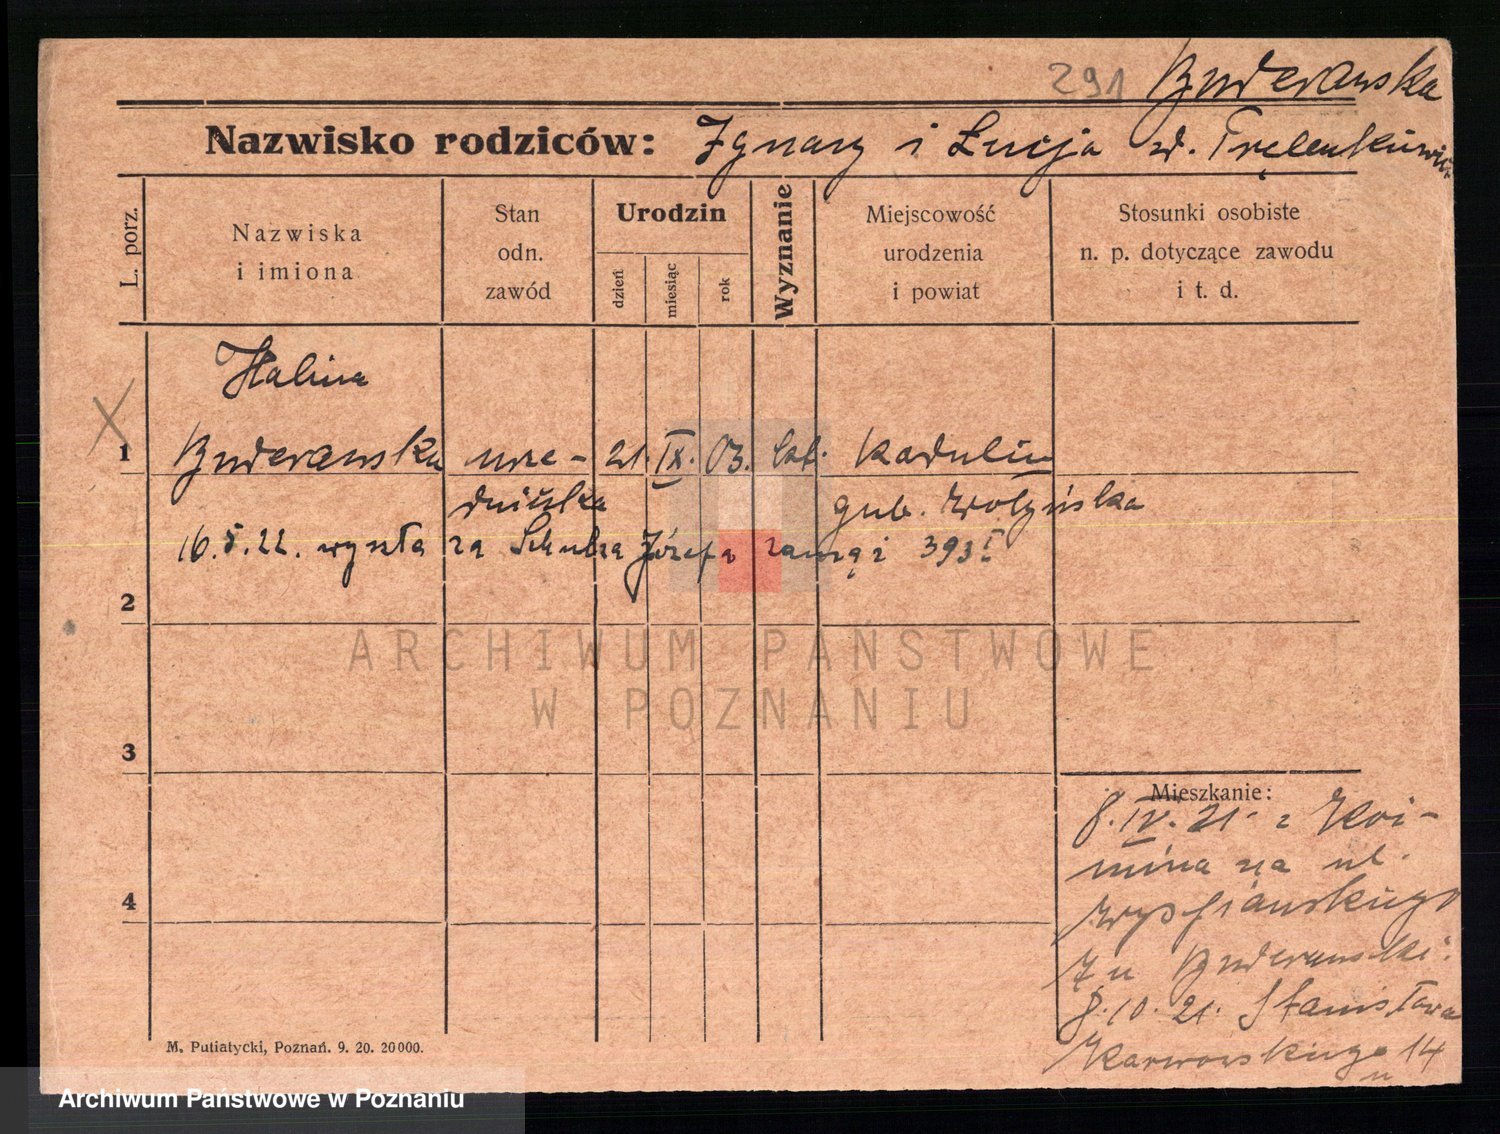 291 Buderawska
Nazwisko rodziców: Ignacy i Łucja
L. porz.
Nazwiska i imiona
Stan odn. zawód
Urodzin
dzień
miesiąc
rok
Wyznanie
Miejscowość urodzenia i powiat
Stosunki osobiste n. p. dotyczące zawodu i t. d.
Halina
1 Buderawska urzę- 21. IX. 03. kat. Radulin
dniczka gub. Wołyńska
16.5.22. wyszła za Schulza Józefa zamąż 393
2
3
4
Mieszkanie:
8. IV. 21. z Koź-
mina na ul.
Wyspiańskiego
u Buderawski.
8.10.21. Stanisława
Karwowskiego 14
M. Putiatycki, Poznań. 9. 20. 20000.
ARCHIWUM PAŃSTWOWE
W POZNANIU
Archiwum Państwowe w Poznaniu